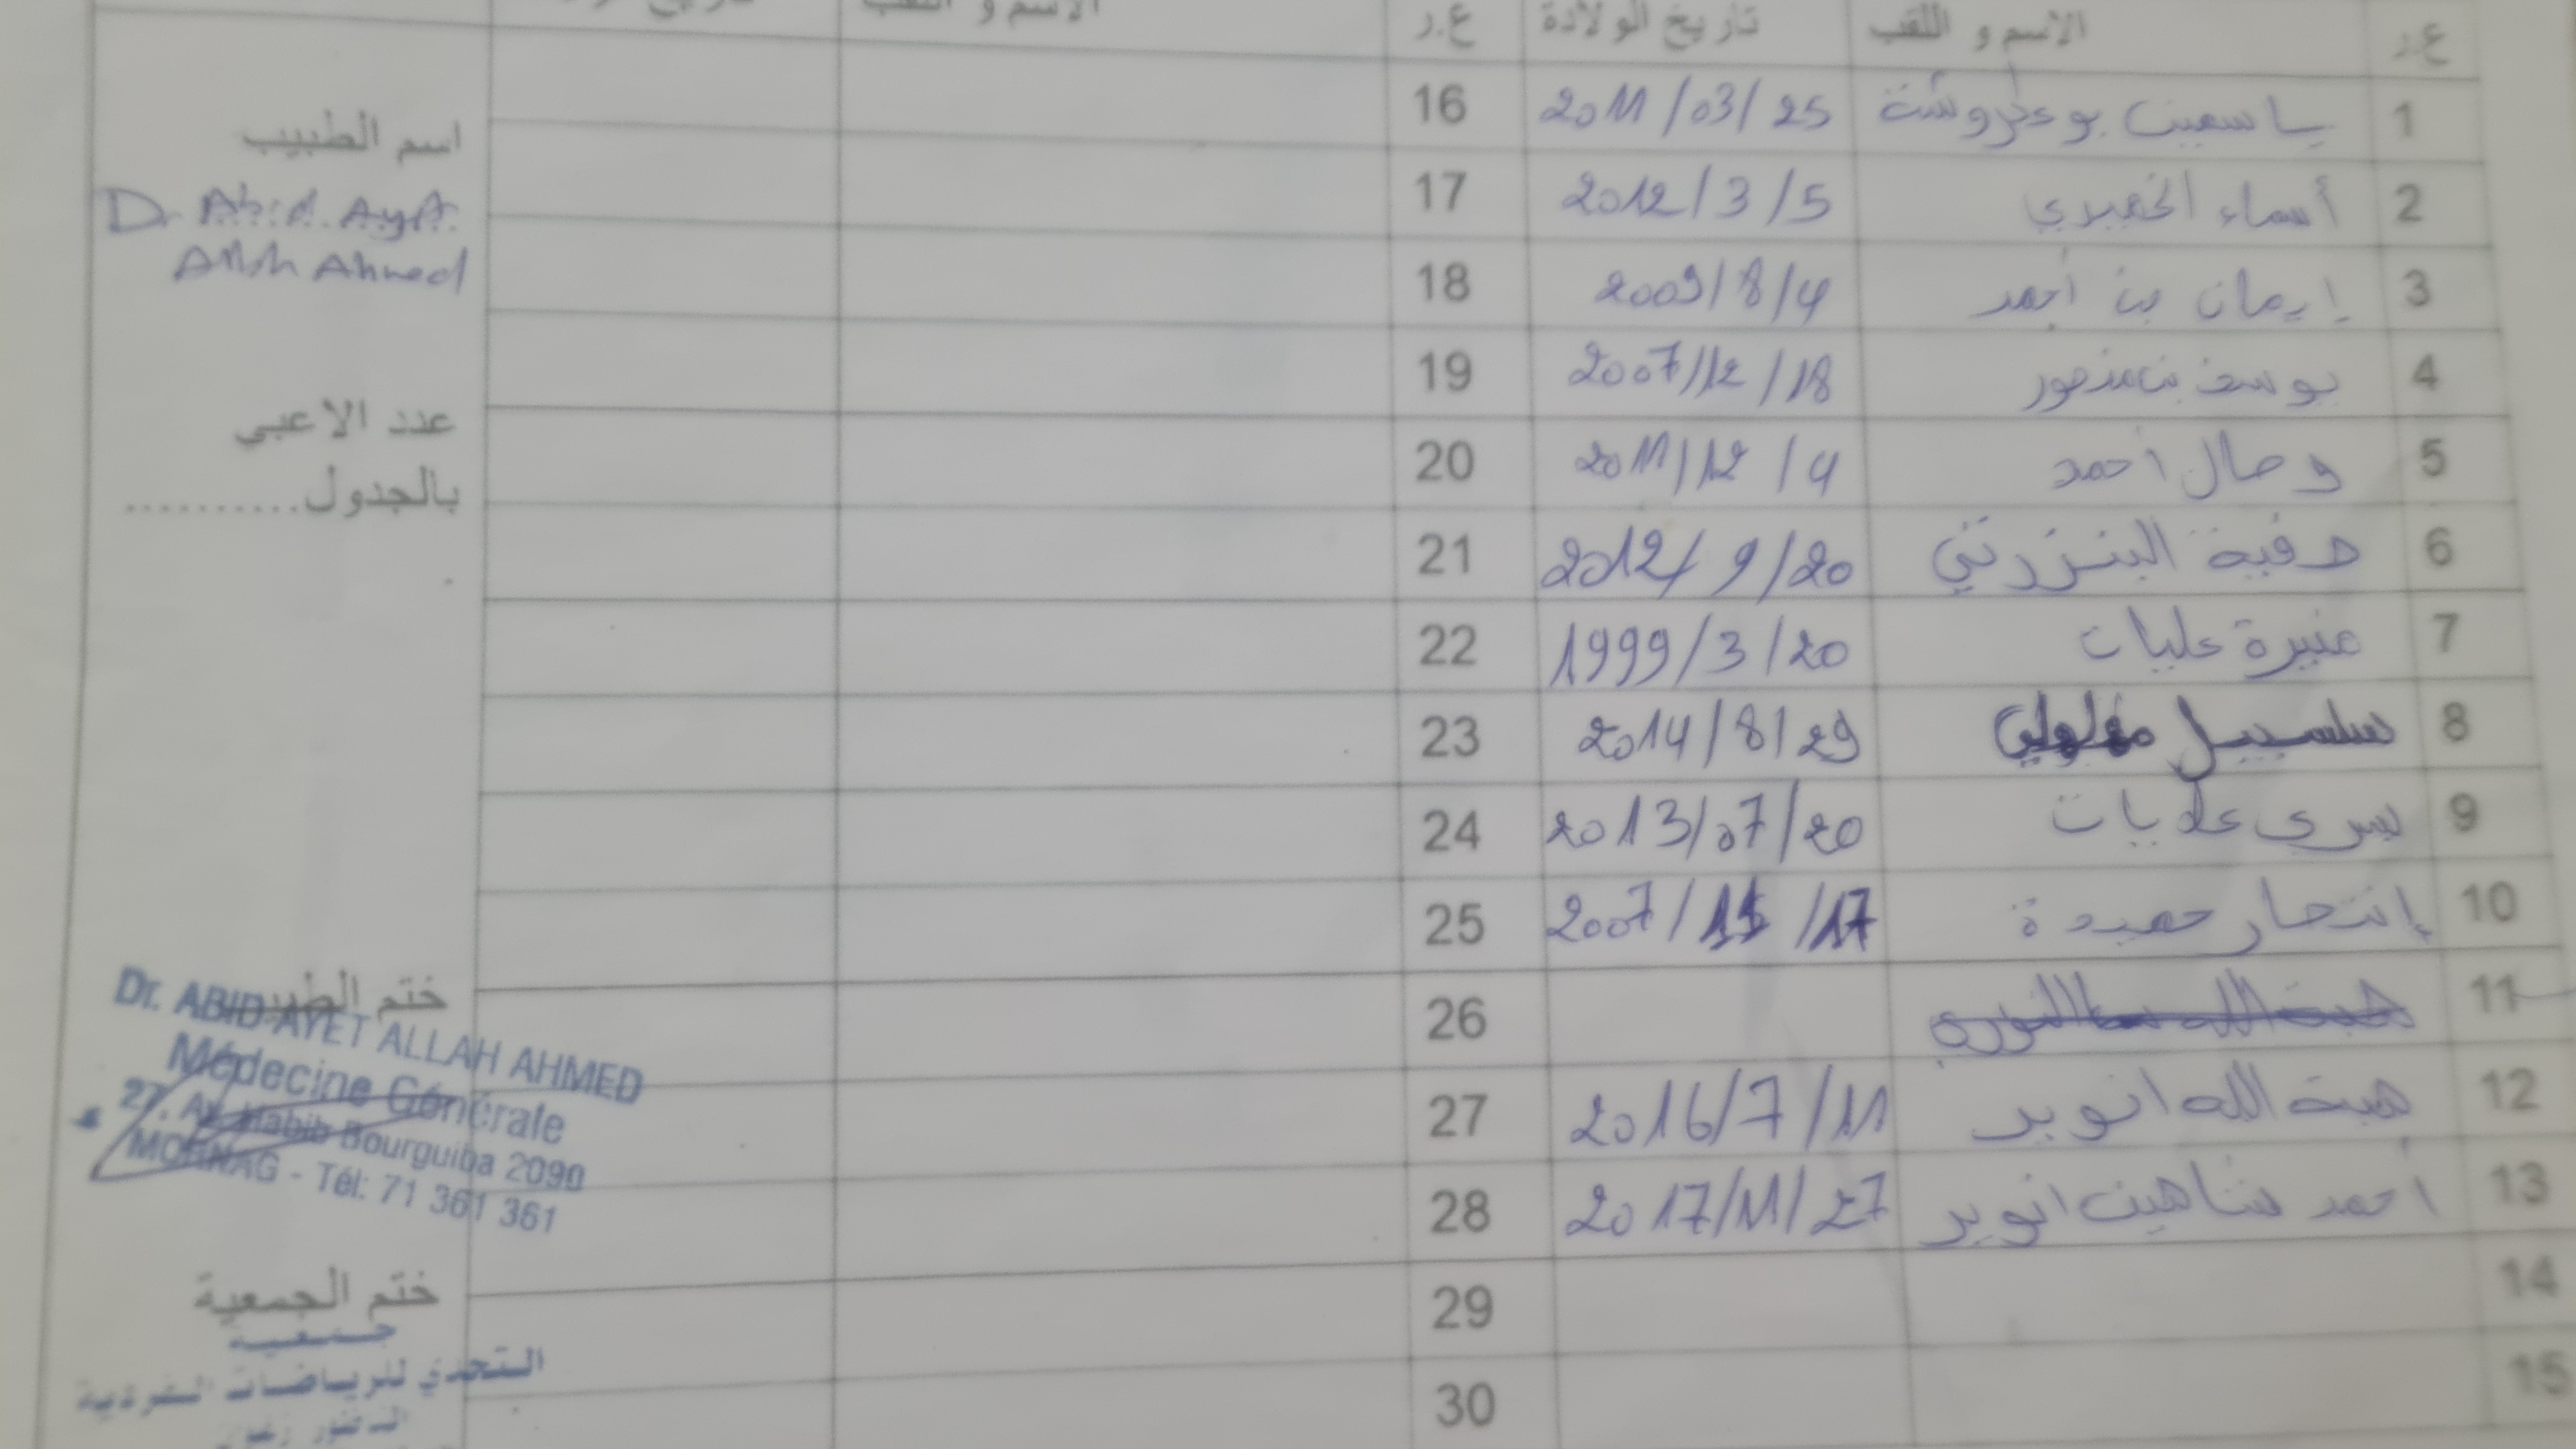 ع.ر الاسم و اللقب تاريخ الولادة ع.ر الاسم و اللقب
1 ياسمين بوعكروشة 2011/03/25 16
2 أسماء الخميري 2012/3/5 17
3 إيمان بن أحمد 2009/8/4 18
4 يوسف بن منصور 2007/12/18 19
5 وصال احمد 2011/12/4 20
6 صفية البنزرتي 2012/9/20 21
7 منيرة عليات 1999/3/20 22
8 سلسبيل 2014/8/29 23
9 يسرى عليات 2013/07/20 24
10 إنتصار حميدة 2007/11/17 25
11 26
12 هبة الله انوير 2016/7/11 27
13 احمد شاهين انوير 2017/11/27 28
14 29
15 30
اسم الطبيب
Dr Abid Ayet
Allah Ahmed
عدد الاعبي
بالجدول..........
ختم الطبيب
Dr. ABID AYET ALLAH AHMED
Médecine Générale
27, Av. Habib Bourguiba 2090
MORNAG - Tél: 71 361 361
ختم الجمعية
جمعية
التحدي للرياضات الفردية